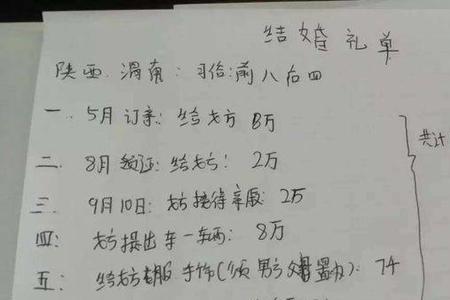 结婚礼单
陕西.渭南:习俗:前八后四
一. 5月订亲:给女方 8万
二. 8月领证:给女方: 2万
共计
三. 9月10日:女方接待亲服: 2万
四: 女方提出车一辆: 8万
五: 给女方 手饰(须男方父母置办):